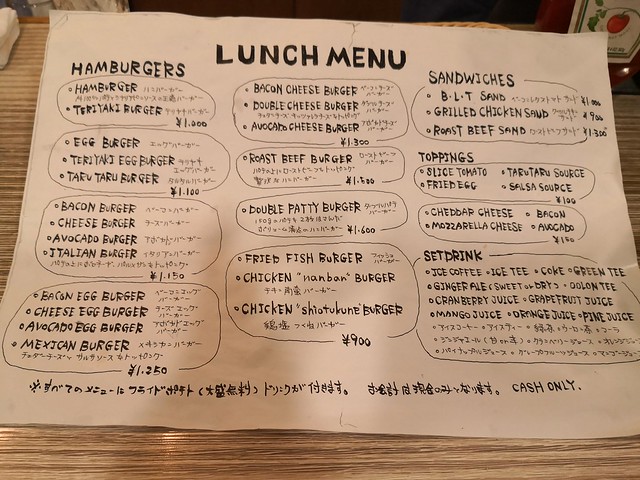 LUNCH MENU
HAMBURGERS
HAMBURGER ハンバーガー
TERIYAKI BURGER テリヤキバーガー
¥1.000
EGG BURGER エッグバーガー
TERIYAKI EGG BURGER テリヤキエッグバーガー
TARUTARU BURGER タルタルバーガー
¥1.100
BACON BURGER ベーコンバーガー
CHEESE BURGER チーズバーガー
AVOCADO BURGER アボカドバーガー
ITALIAN BURGER イタリアンバーガー
¥1.150
BACON EGG BURGER ベーコンエッグバーガー
CHEESE EGG BURGER チーズエッグバーガー
AVOCADO EGG BURGER アボカドエッグバーガー
MEXICAN BURGER メキシカンバーガー
チェダーチーズとサルサソースをトッピング
¥1.250
BACON CHEESE BURGER ベーコンチーズバーガー
DOUBLE CHEESE BURGER ダブルチーズバーガー
AVOCADO CHEESE BURGER アボカドチーズバーガー
¥1.300
ROAST BEEF BURGER ローストビーフバーガー
パテの上にローストビーフをトッピング
贅沢なハンバーガー
¥1.500
DOUBLE PATTY BURGER ダブルパテバーガー
¥1.600
FRIED FISH BURGER フィッシュバーガー
CHICKEN "nanban" BURGER
チキン南蛮バーガー
CHICKEN "shiotukune" BURGER
鶏塩つくねバーガー
¥900
SANDWICHES
B.L.T SAND ベーコンレタストマトサンド ¥1.000
GRILLED CHICKEN SAND グリルチキンサンド ¥900
ROAST BEEF SAND ローストビーフサンド ¥1.300
TOPPINGS
SLICE TOMATO TARUTARU SOURCE
FRIED EGG SALSA SOURCE
¥100
CHEDDAR CHEESE BACON
MOZZARELLA CHEESE AVOCADO
¥150
SET DRINK
ICE COFFEE ICE TEE COKE GREEN TEE
GINGER ALE (SWEET or DRY) OOLON TEE
CRANBERRY JUICE GRAPEFRUIT JUICE
MANGO JUICE ORANGE JUICE PINE JUICE
アイスコーヒー アイスティー 緑茶 ウーロン茶 コーラ
ジンジャエール(甘or辛) クランベリージュース オレンジジュース
パイナップルジュース グレープフルーツジュース マンゴージュース
※すべてのメニューにフライドポテト(大盛無料)ドリンクが付きます。 お会計は現金のみとなります。 CASH ONLY.